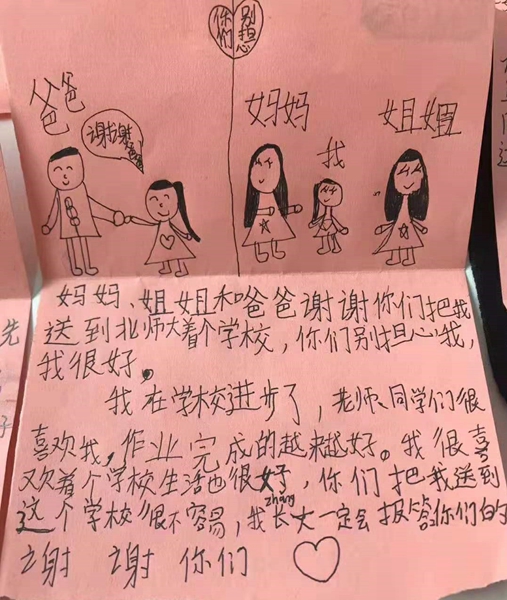 你们
别担心
爸爸
谢谢爸爸
妈妈
我
姐姐
妈妈、姐姐和爸爸谢谢你们把我
送到北师大着个学校,你们别担心我,
我很好。
我在学校进步了,老师、同学们很
喜欢我,作业完成的越来越好。我很喜
欢着个学校生活也很好,你们把我送到
zhang
这个学校很不容易,我长大一定会报答你们的
谢谢你们